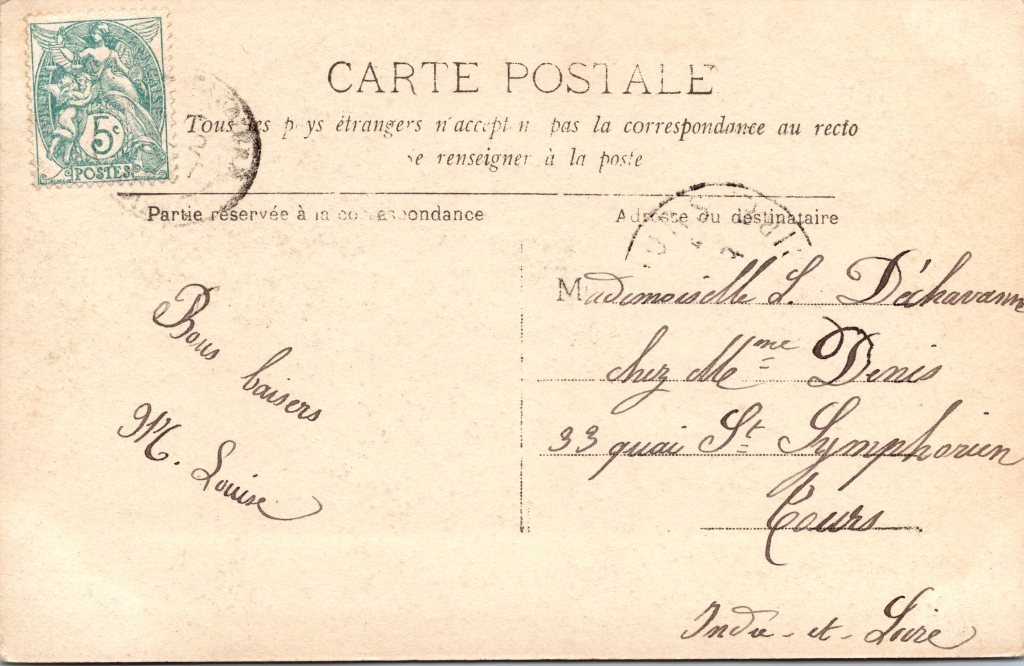 CARTE POSTALE
Tous les pays étrangers n'acceptent pas la correspondance au recto
Se renseigner à la poste
5c
POSTES
Partie réservée à la correspondance
Adresse du destinataire
Bons baisers
M. Louise
Mademoiselle L. Déchavanne
chez Mme Denis
33 quai St Symphorien
Tours
Indre-et-Loire